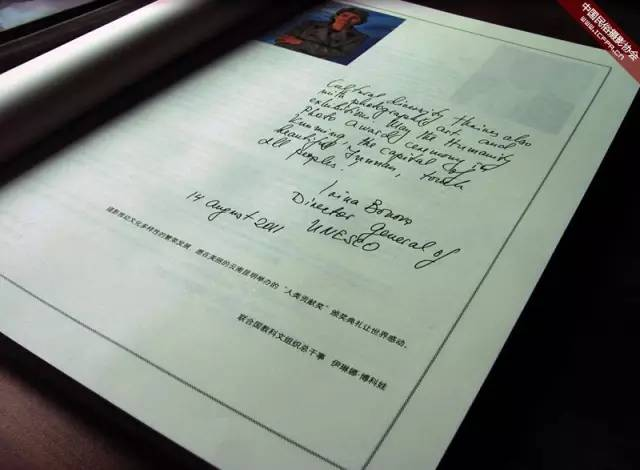 中国民俗摄影协会
www.icfpa.cn
Cultural diversity thrives also
with photography art and
exhibitions. May the Humanity
Photo Awards ceremony in
Kunming, the capital of
beautiful Yunnan, touch
all peoples.
Irina Bokova
Director general of
UNESCO
14 August 2011
摄影推动文化多样性的繁荣发展，愿在美丽的云南昆明举办的“人类贡献奖”颁奖典礼让世界感动。
联合国教科文组织总干事 伊琳娜·博科娃